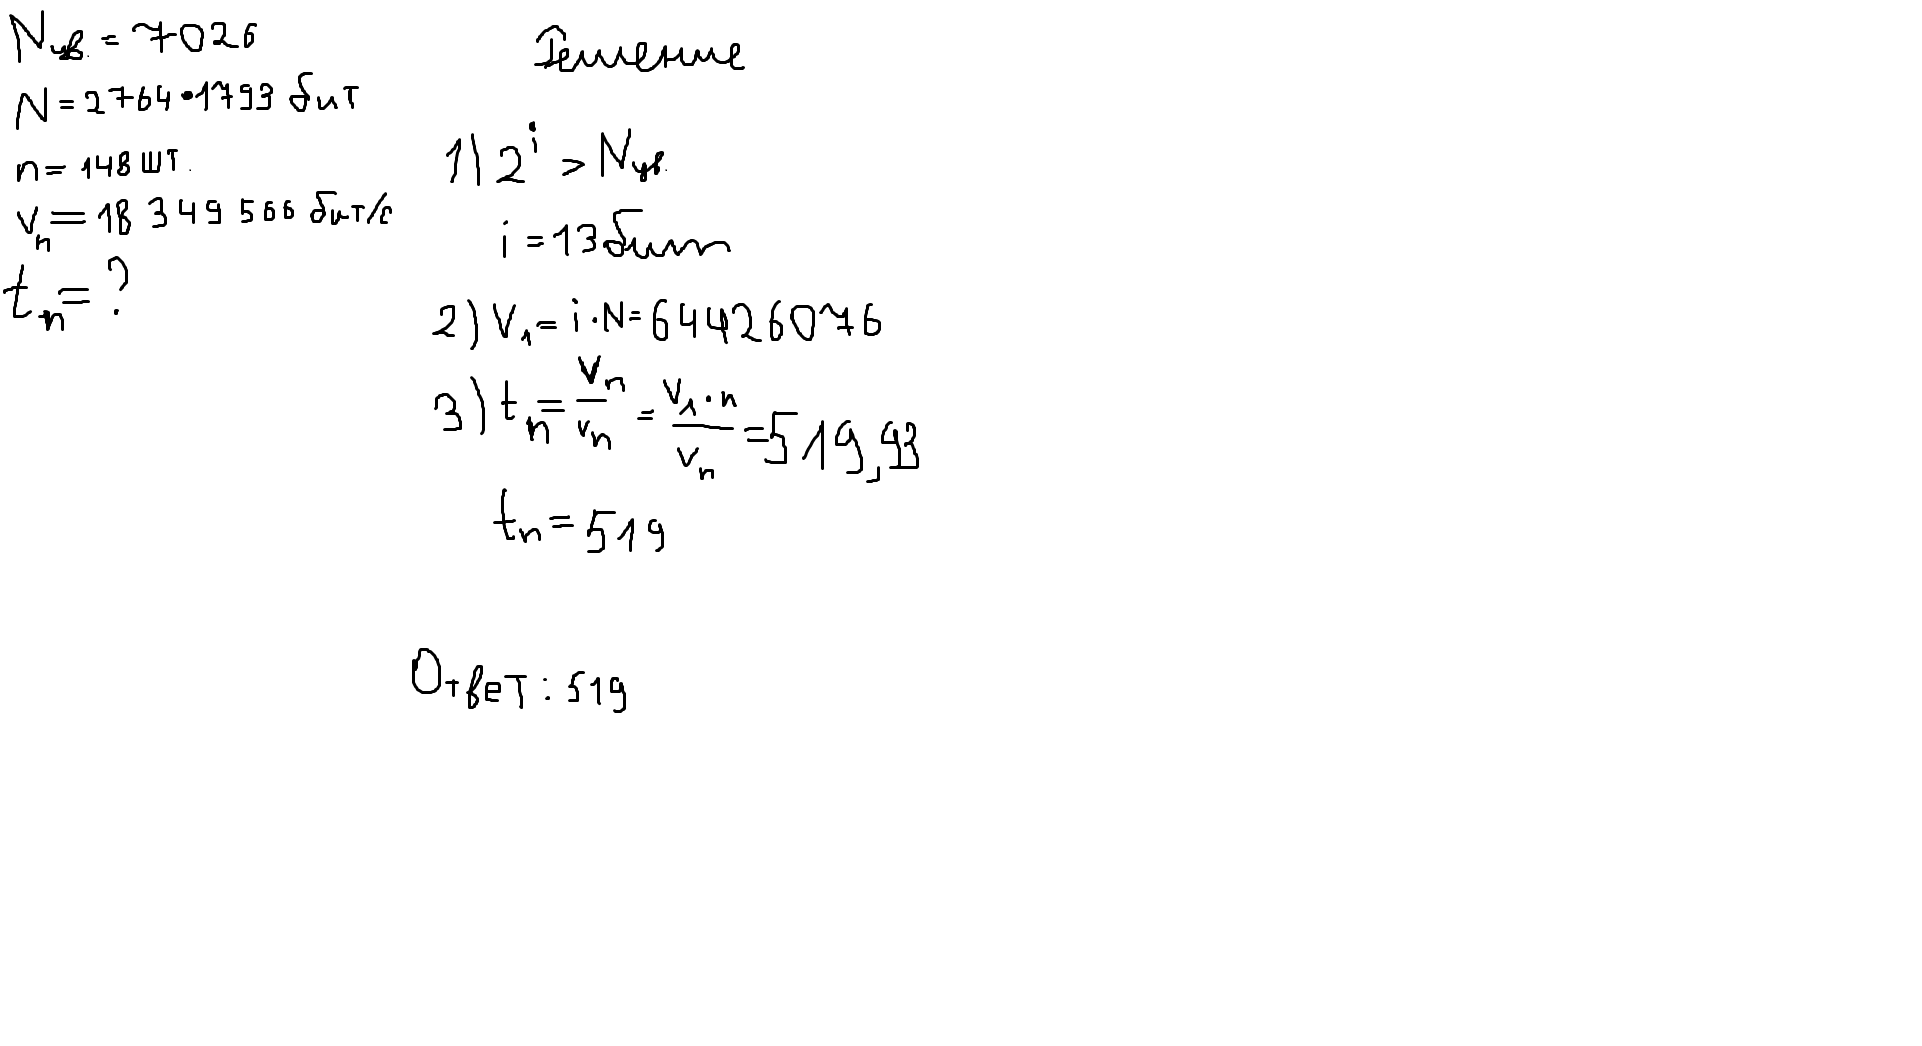 Nцв. = 7026
N = 2764 • 1793 бит
n = 148 шт.
vn = 18 349 566 бит/с
tn = ?
Решение
1) 2^i > Nцв.
i = 13 бит
2) V1 = i · N = 64426076
3) tn = Vn / vn = V1 · n / vn = 519,93
tn = 519
Ответ: 519